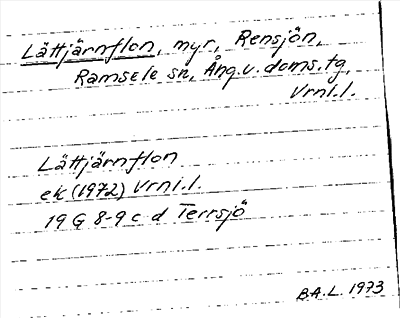 Lättjärnflon, myr, Rensjön,
Ramsele sn, Ång.v.doms.tg,
Vrnl.l.
Lättjärnflon
ek (1972) Vrnl.l.
19 G 8-9 c d Terrsjö
B.A.L. 1973